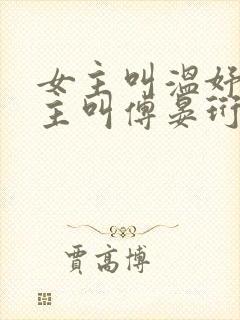 女主叫温妤
主叫傅晏珩
贾高博